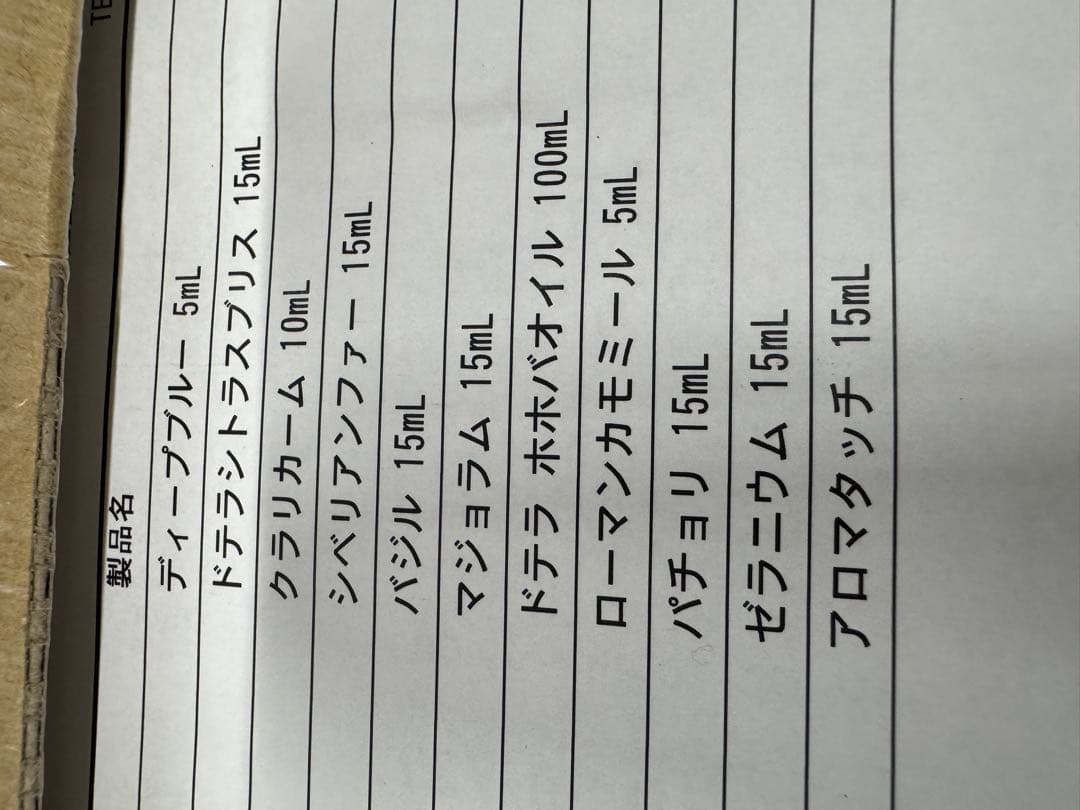 TE
製品名
ディープブルー 5mL
ドテラシトラスブリス 15mL
クラリカーム 10mL
シベリアンファー 15mL
バジル 15mL
マジョラム 15mL
ドテラ ホホバオイル 100mL
ローマンカモミール 5mL
パチョリ 15mL
ゼラニウム 15mL
アロマタッチ 15mL